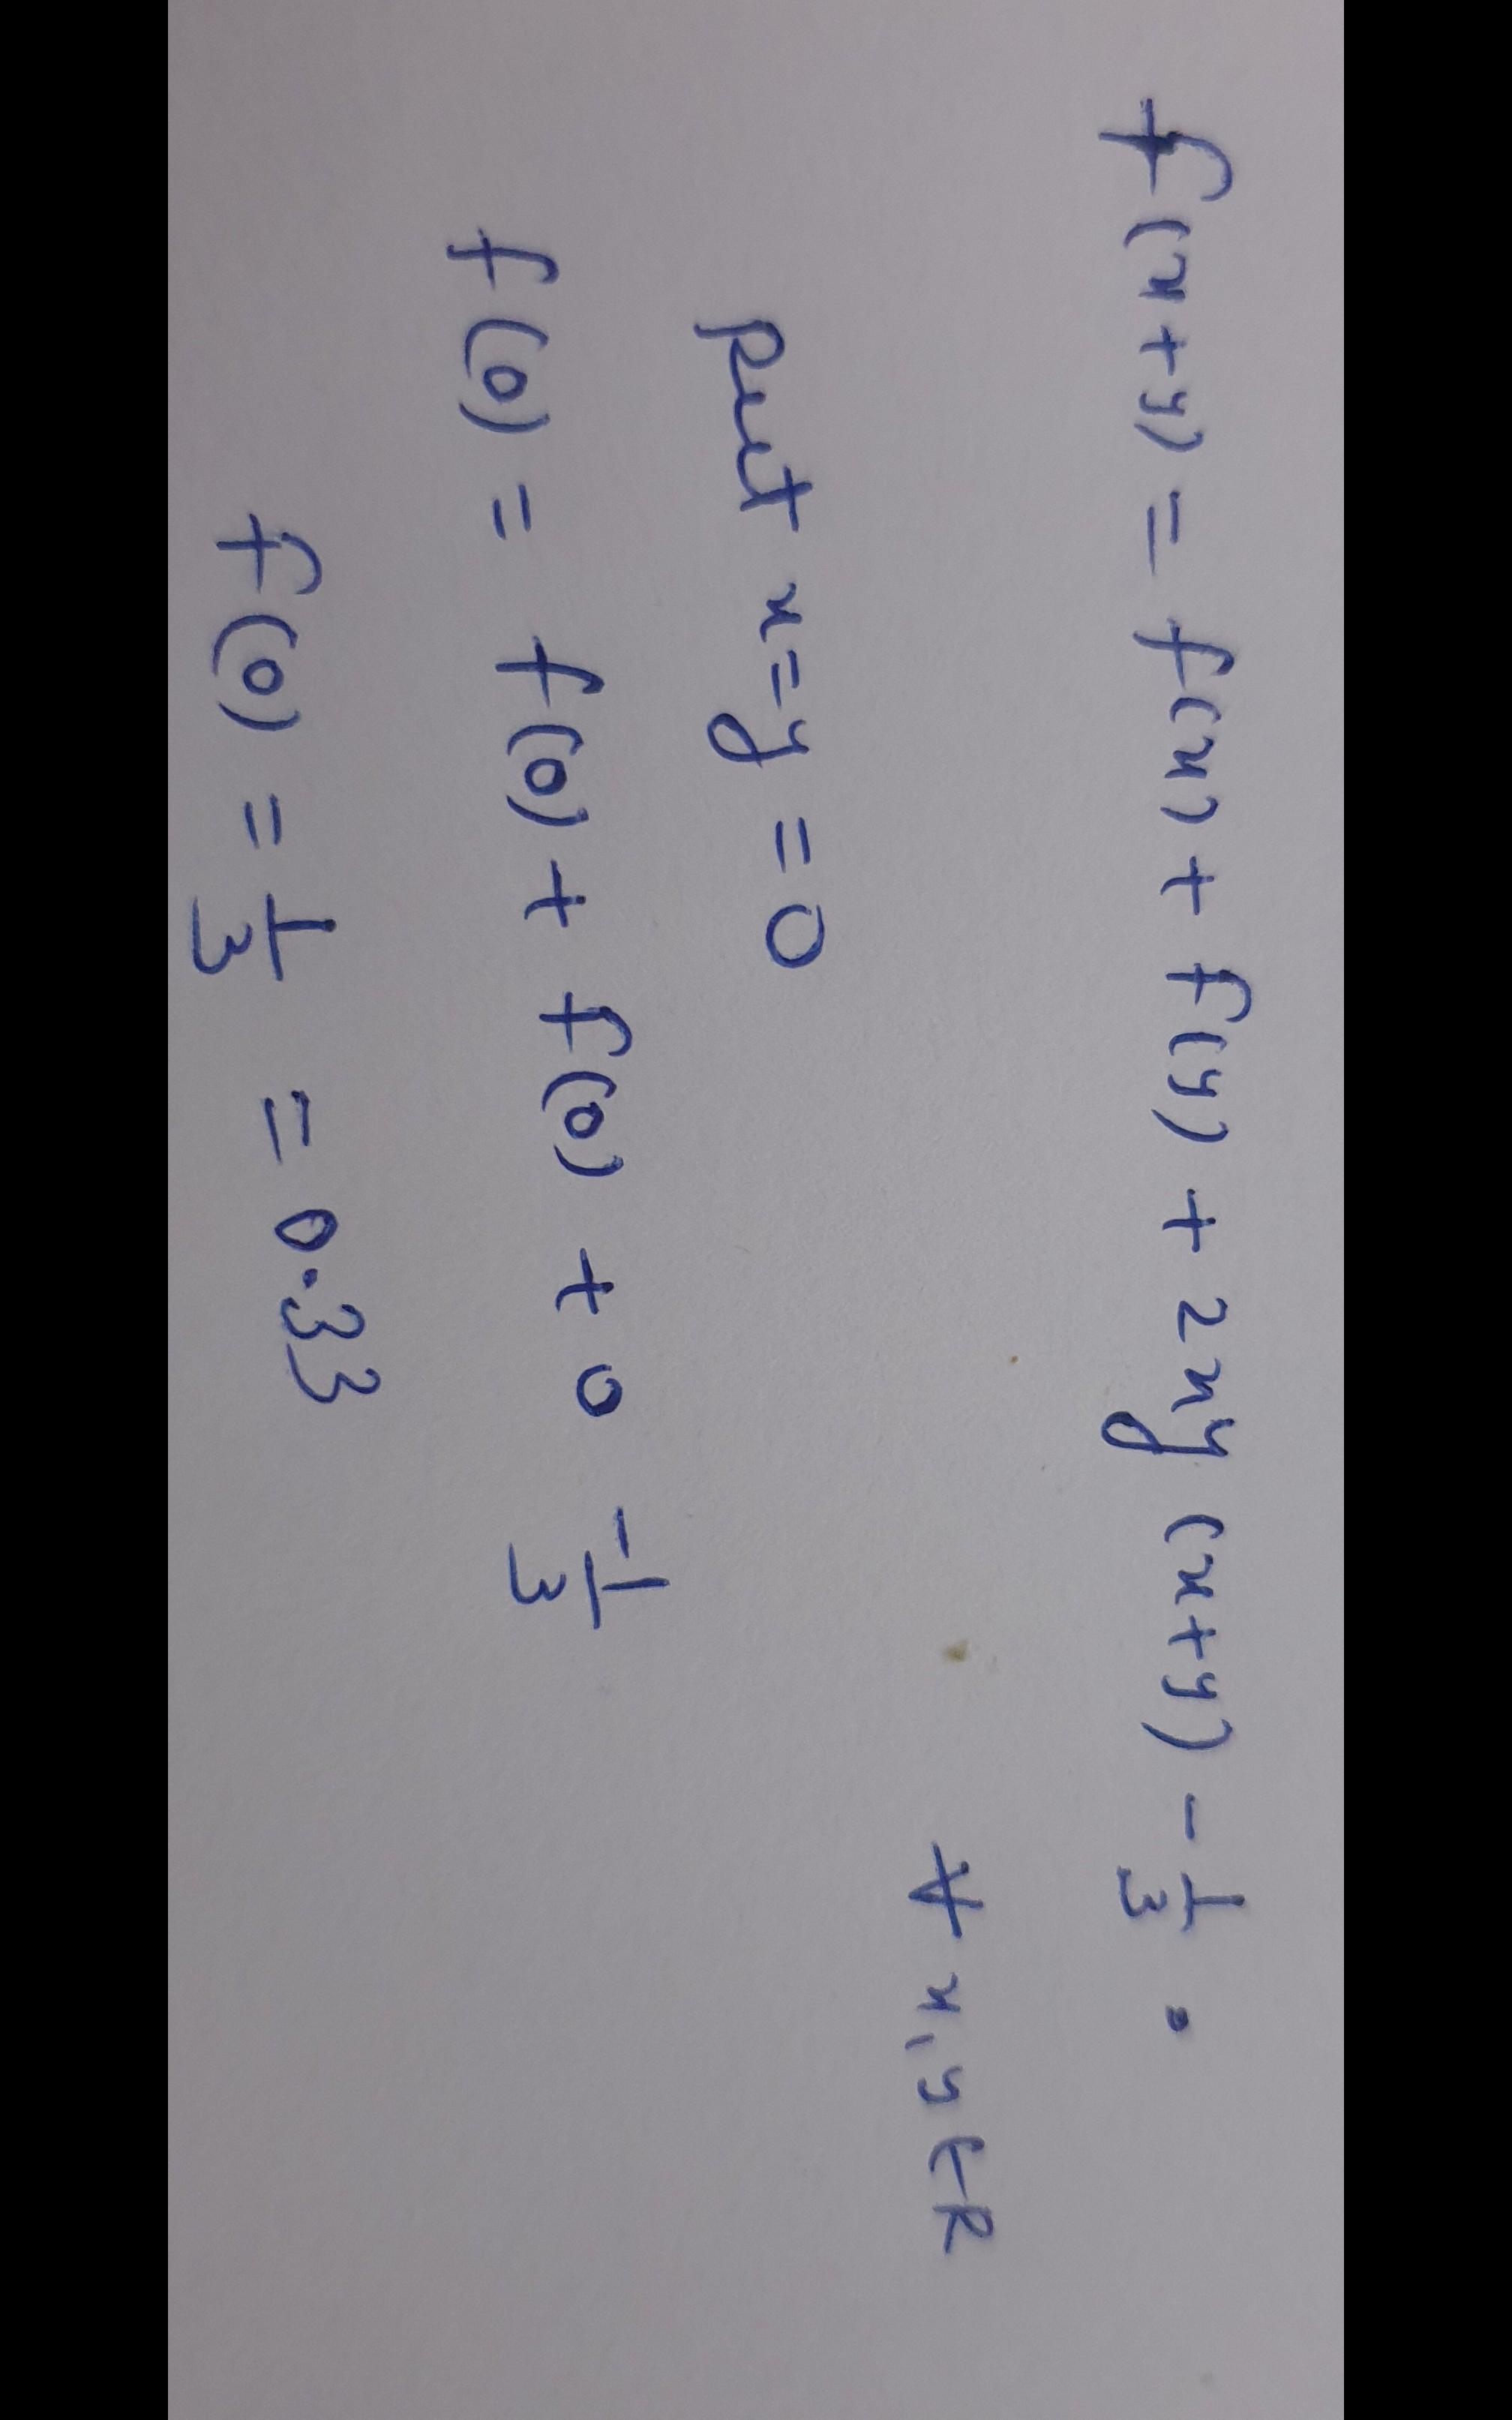 f(x+y) = f(x) + f(y) + 2xy (x+y) - 1/3 .
∀ x, y ∈ R
put x = y = 0
f(0) = f(0) + f(0) + 0 - 1/3
f(0) = 1/3 = 0.33